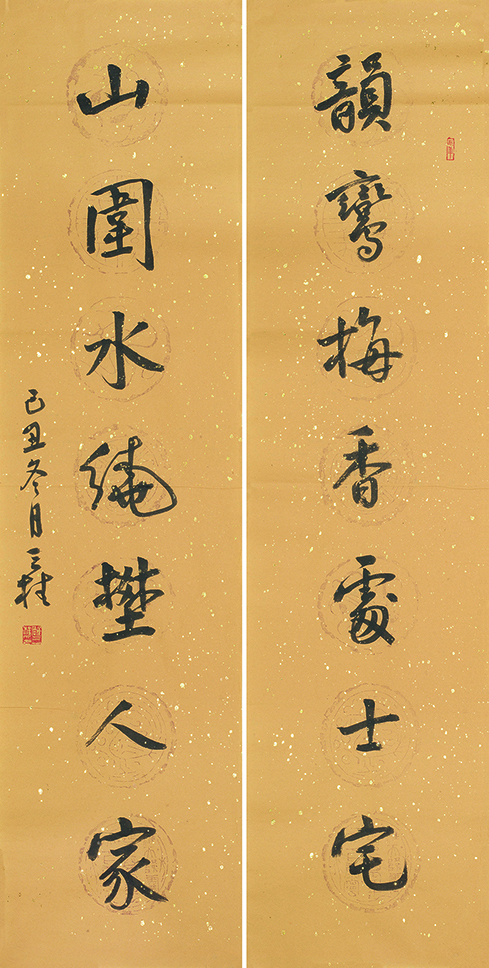 韻鸞梅香處士宅
山圍水繞壄人家
己丑冬月